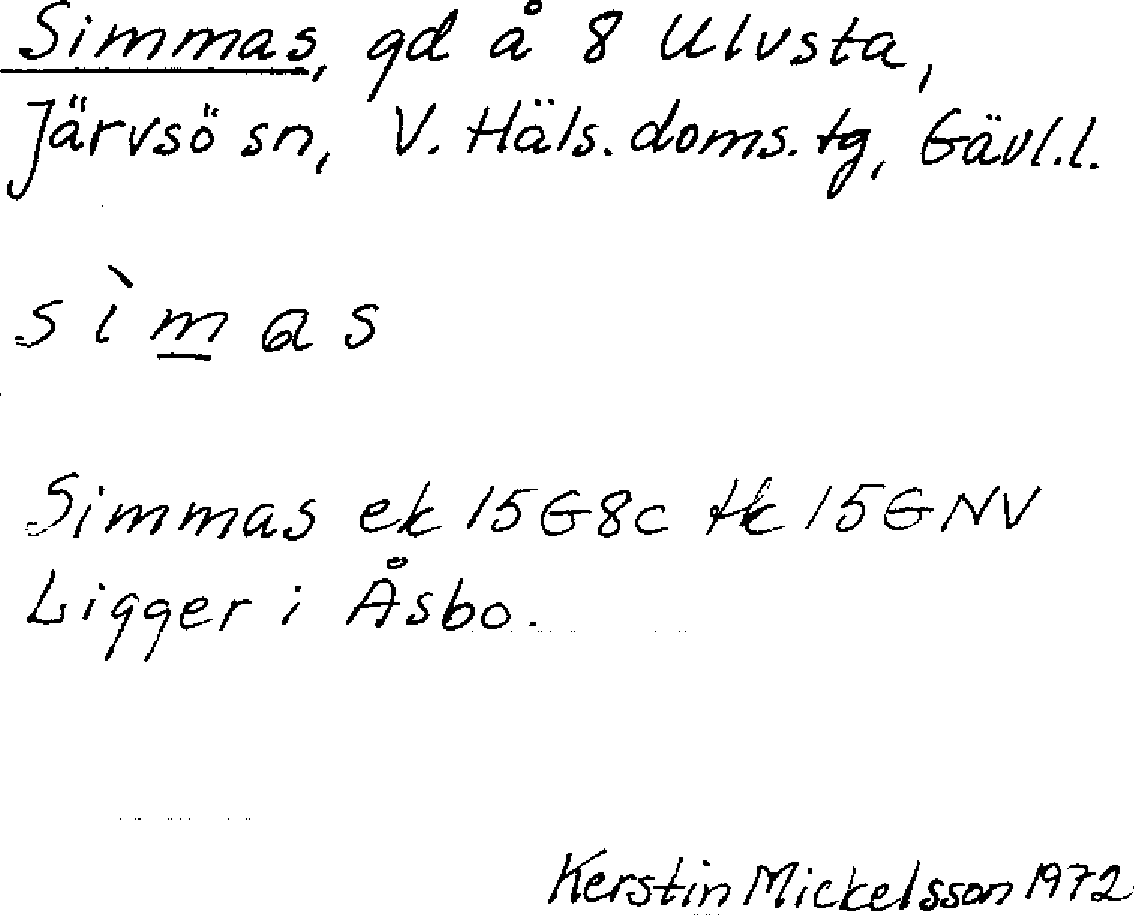 Simmas, gd å 8 Ulvsta,
Järvsö sn, V. Häls. doms. tg, Gävl.l.
sìm̲as
Simmas ek 15G8c tk 15GNV
Ligger i Åsbo.
Kerstin Mickelsson 1972